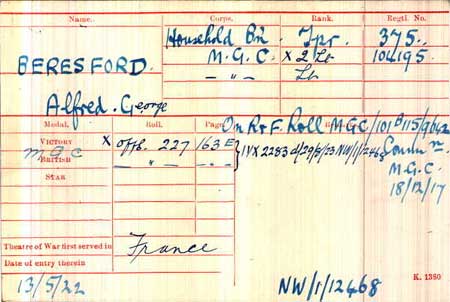 Name. Corps. Rank. Regtl. No.
Household Bn. Tpr. 375.
BERESFORD. M.G.C. X 2 Lt 104195.
— " — Lt.
Alfred. George
Medal. Roll. Page On R & F. Roll M.G.C/101 B115/9642
VICTORY X Offr. 227 163 E IVX 2283 d/29/5/23 NW/1/12468
M G C Commn.
BRITISH — " — — " — M.G.C.
STAR 18/12/17
Theatre of War first served in France
Date of entry therein
13/5/22 NW/1/12468 K. 1380